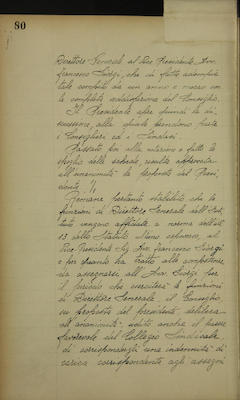 80
Direttore Generale al Vice Presidente, Avv.
Francesco Giorgi, che di fatto adempie
tale compito da un anno e mezzo con
la completa soddisfazione del Consiglio.
Il Presidente apre quindi la di-
scussione, alla quale prendono parte
i Consiglieri ed i Sindaci.
Passato poi alla votazione e fatto lo
spoglio delle schede, risulta approvata
all'unanimità la proposta del Presi-
dente.
Rimane pertanto stabilito che le
funzioni di Direttore Generale dell'Isti-
tuto vengono affidate a norma dell'art.
dello Statuto al
Vice Presidente Sig. Avv. Francesco Giorgi
e per quanto ha tratto alle competenze
da assegnarsi all'Avv. Giorgi per
il periodo che eserciterà le funzioni
di Direttore Generale, il Consiglio,
su proposta del presidente, delibera
all'unanimità, udito anche il parere
favorevole del Collegio Sindacale,
di corrispondergli una indennità di
carica corrispondente agli assegni